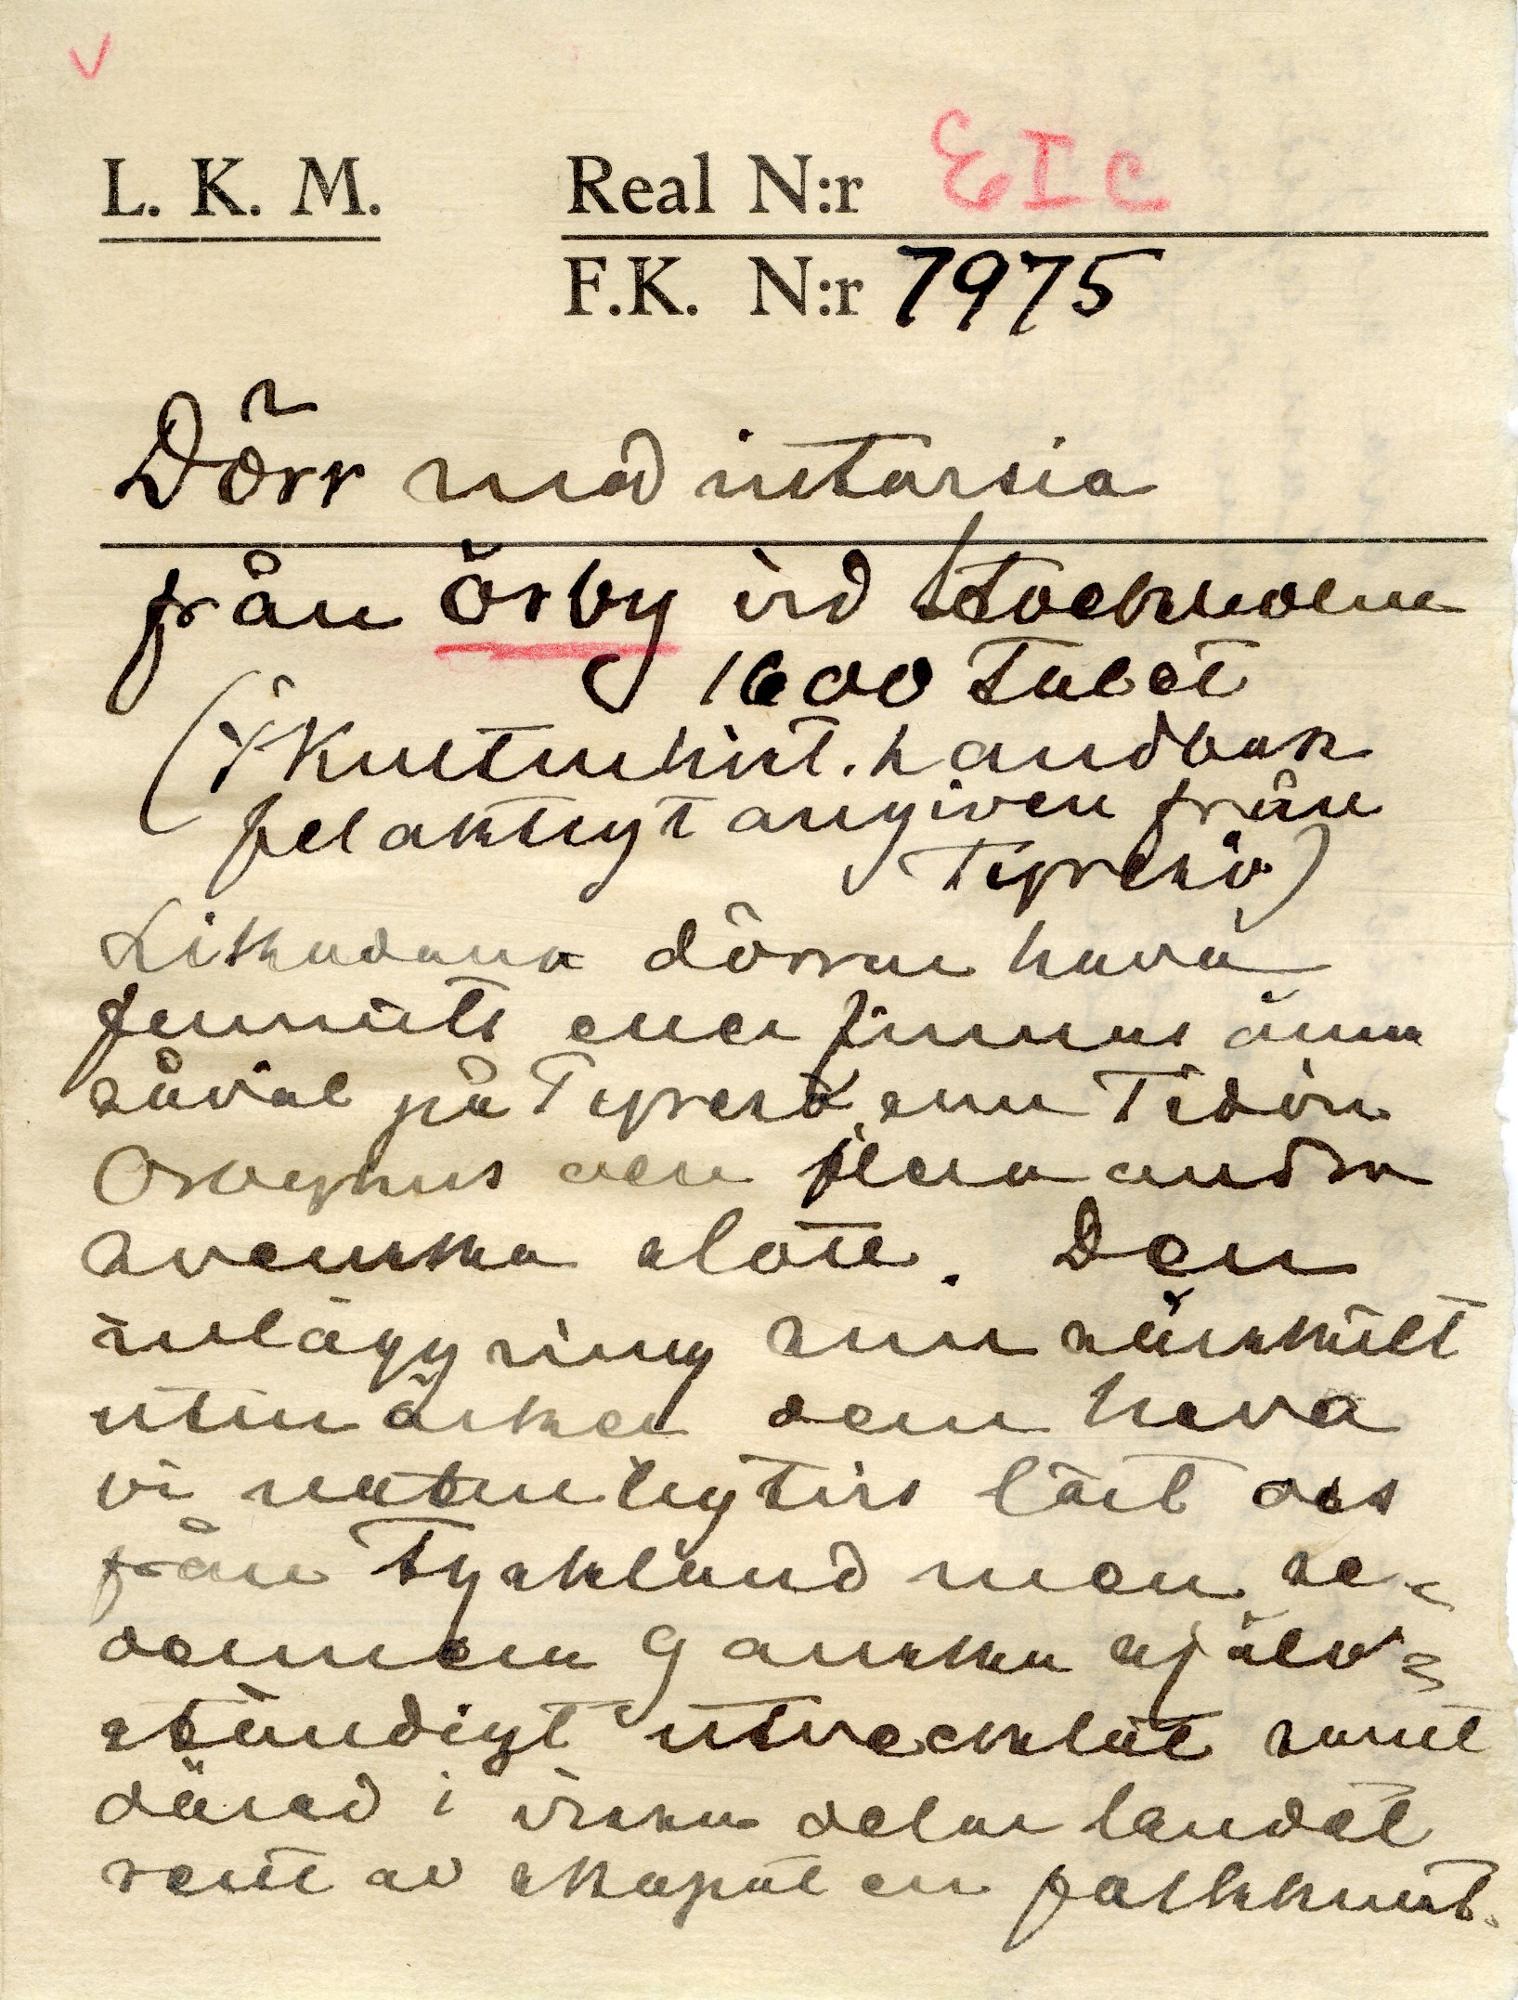 V
L. K. M. Real N:r EIC
F.K. N:r 7975
Dörr med intarsia
från Örby vid Stockholm
1600 talet
(i Kulturhist. handbok
felaktigt angiven från
Tyresö)
Likadana dörrar hava
funnits eller finnas ännu
såväl på Tyresö som Tidön
Örbyhus och flera andra
svenska slott. Den
inläggning som särskilt
utmärker dem hava
vi naturligtvis lärt oss
från Tyskland men se-
dermera ganska själv-
ständigt utvecklat samt
därad i vissa delar landet
rent av skapat en folkkonst.